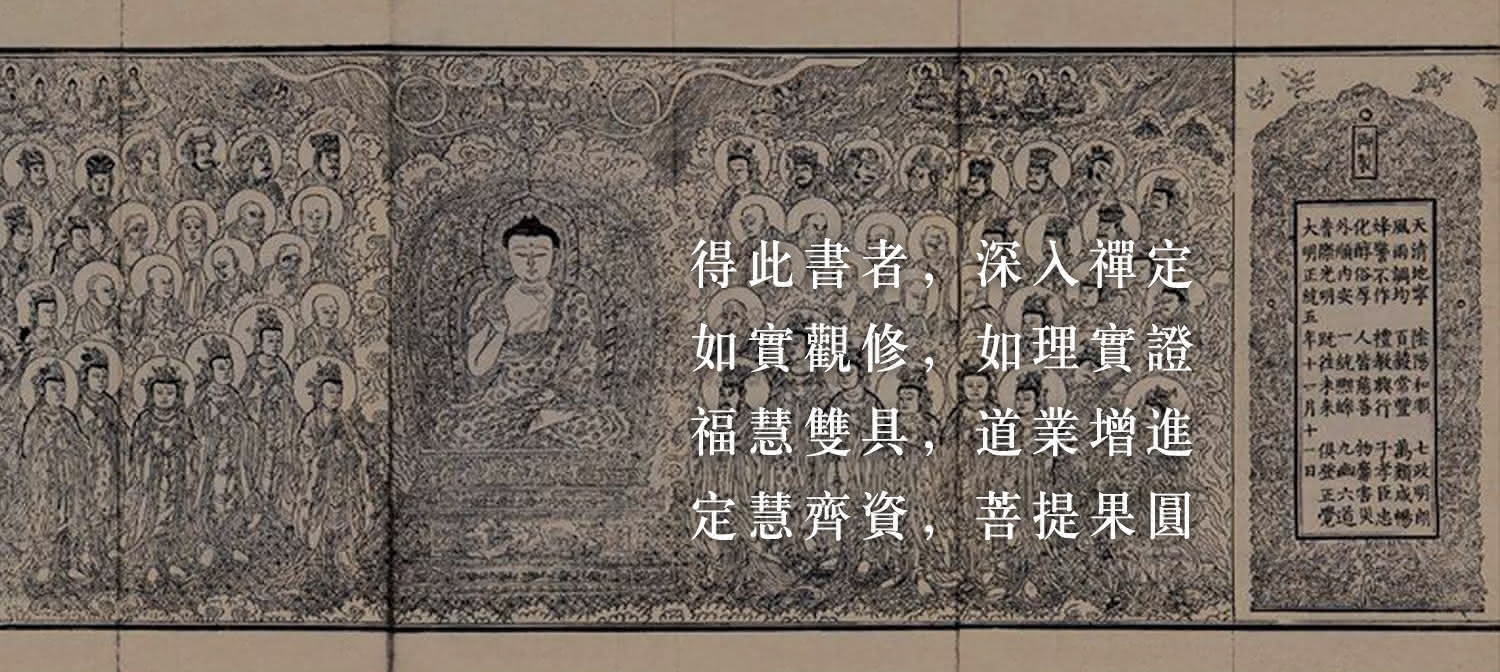 得此書者，深入禪定
如實觀修，如理實證
福慧雙具，道業增進
定慧齊資，菩提果圓
御製
天清地寧 陰陽和順 七政明朗
風雨調均 百穀常豐 萬類咸暢
烽警不作 禮教行 子孝臣忠
化醇俗厚 人皆慈善 物靡害災
外順內安 一統熙皞 九幽六道
普際光明 既往未來 俱登正覺
大明正統五年十一月十一日